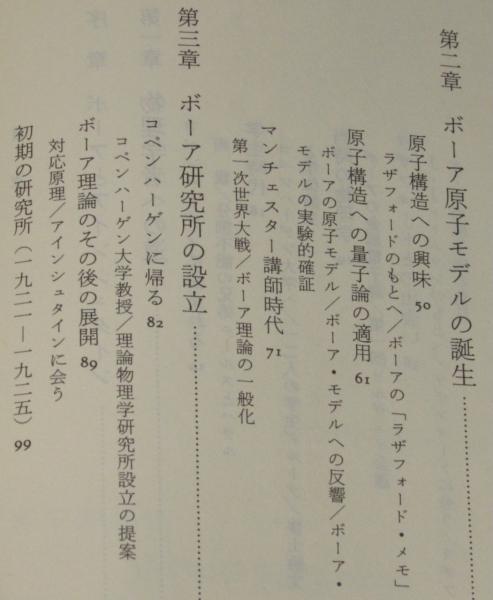 第二章　ボーア原子モデルの誕生……………
原子構造への興味　50
ラザフォードのもとへ／ボーアの「ラザフォード・メモ」
原子構造への量子論の適用　61
ボーアの原子モデル／ボーア・モデルへの反響／ボーア・
モデルの実験的確証
マンチェスター講師時代　71
第一次世界大戦／ボーア理論の一般化
第三章　ボーア研究所の設立……………
コペンハーゲンに帰る　82
コペンハーゲン大学教授／理論物理学研究所設立の提案
ボーア理論のその後の展開　89
対応原理／アインシュタインに会う
初期の研究所（一九二一―一九二五）　99